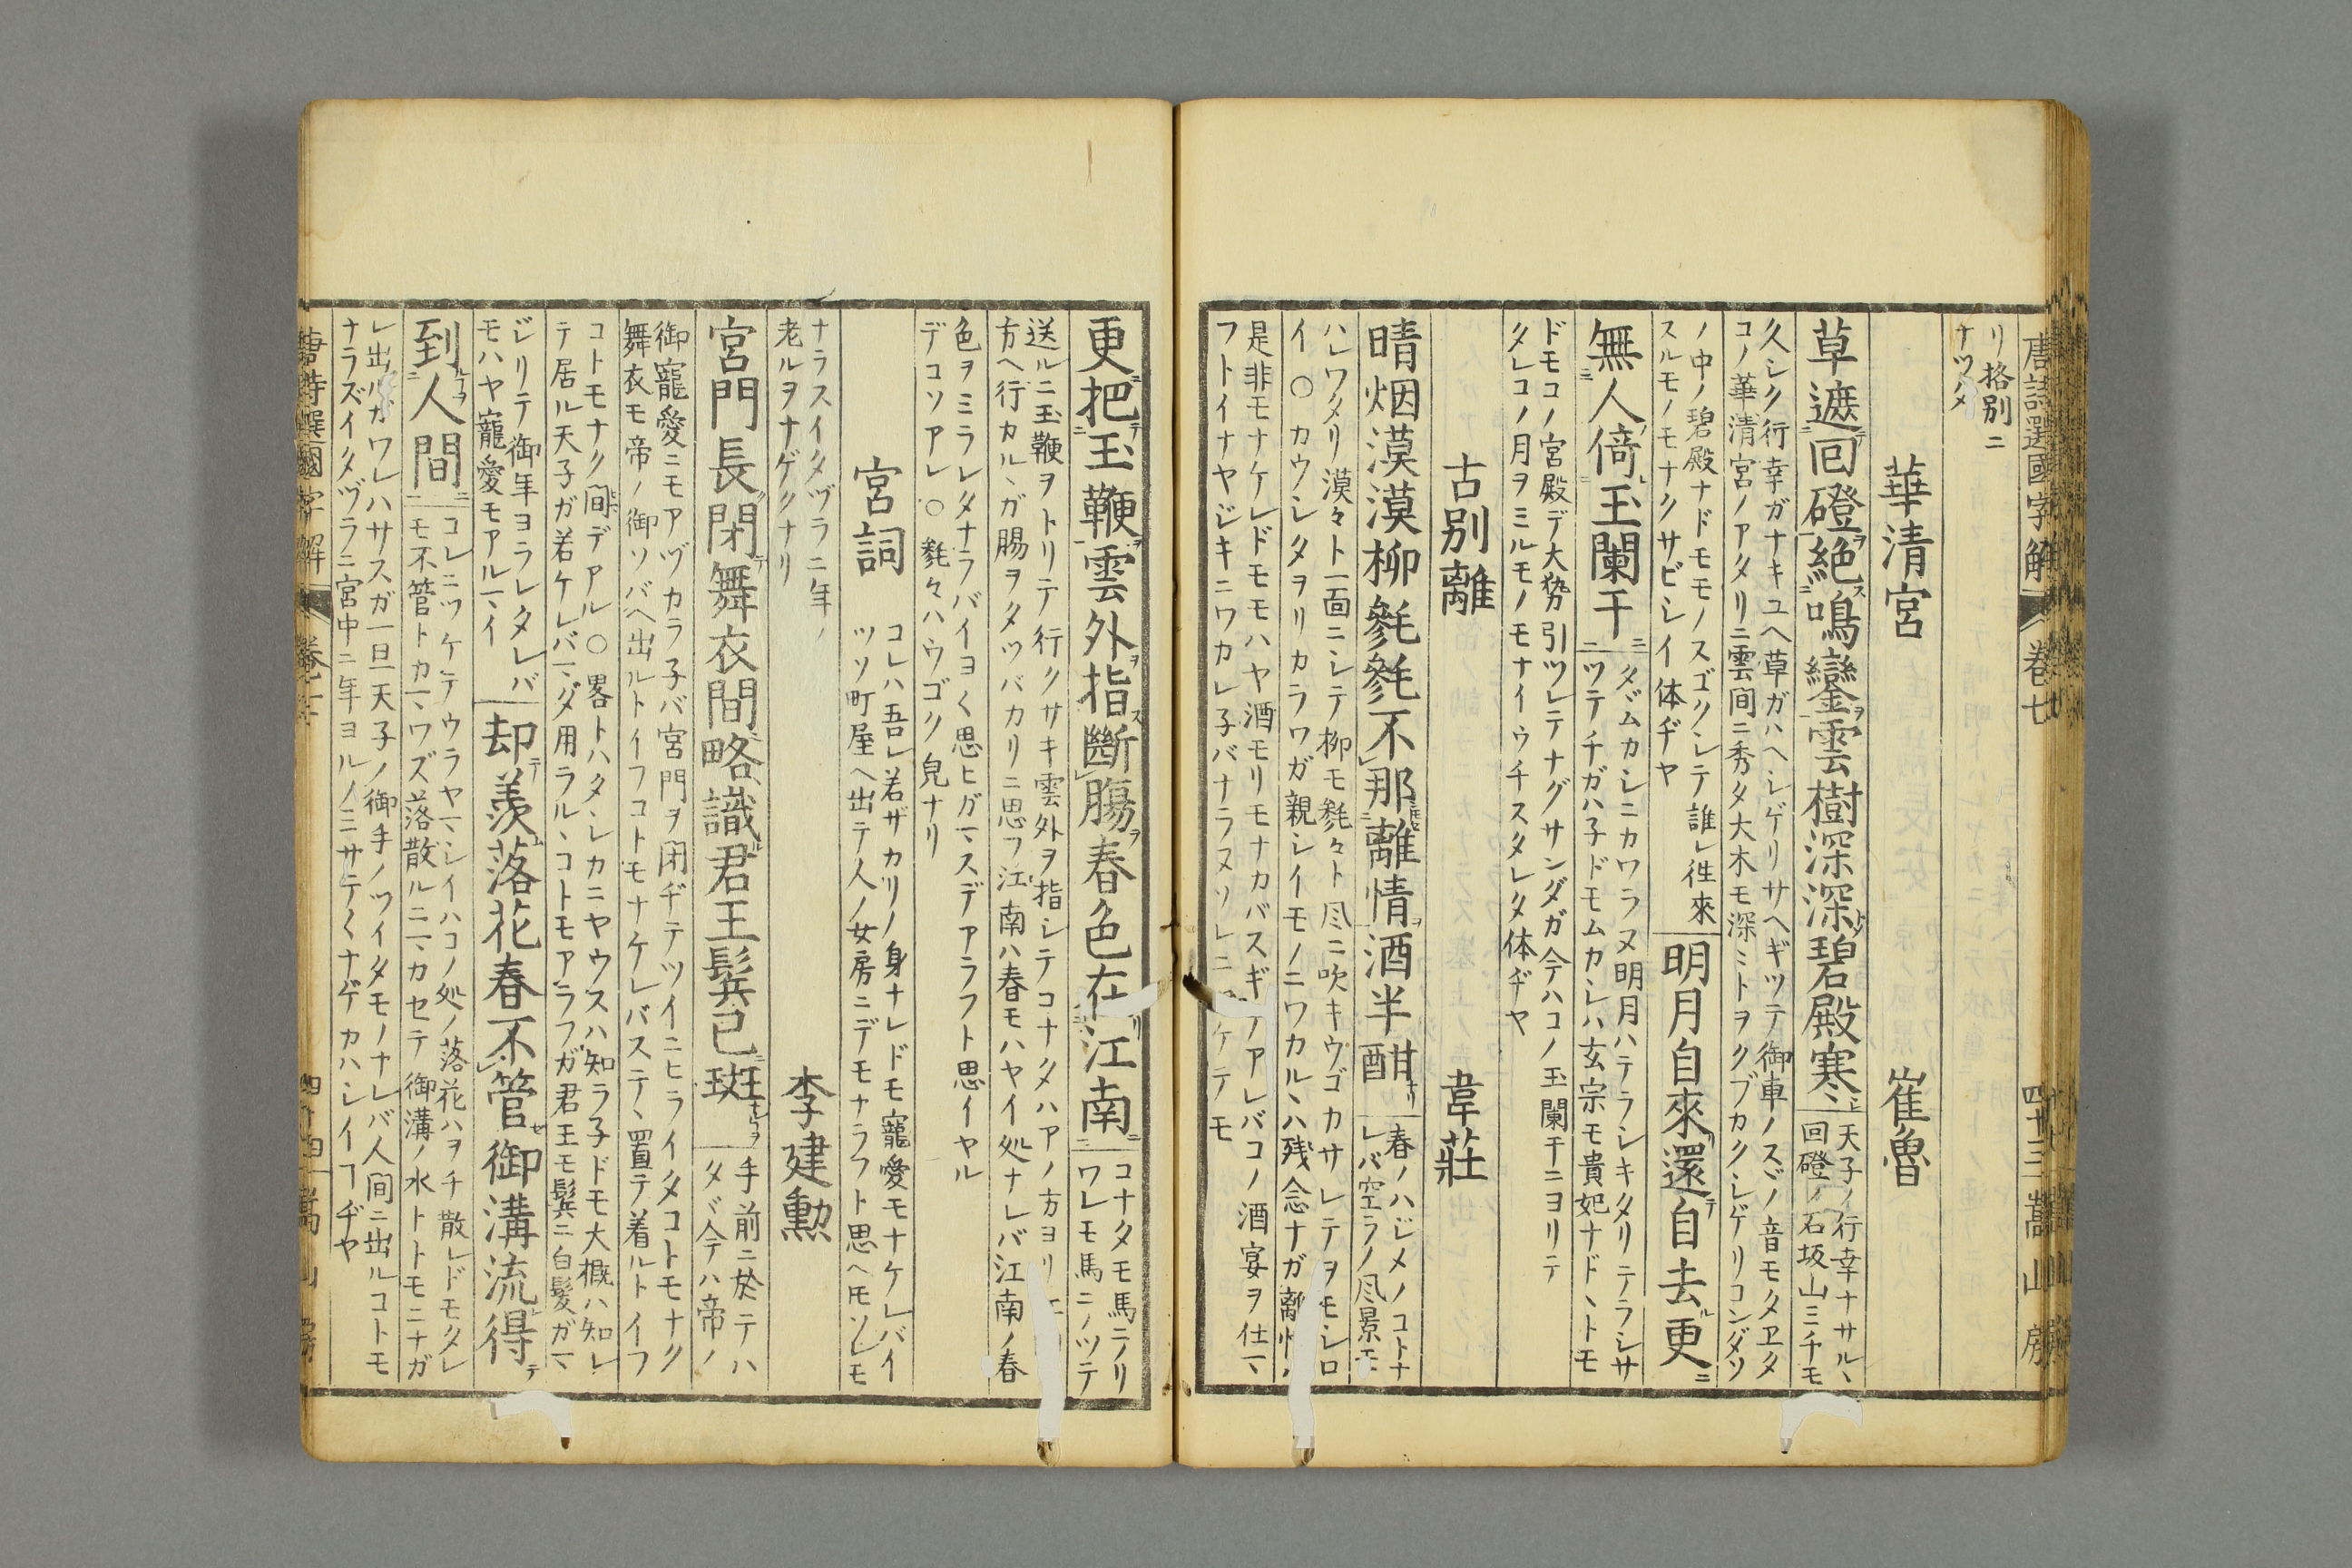 唐詩選國字解 卷七 四十三 嵩山房
リ格別ニ
ナツタ
華清宮 崔魯
草遮回磴絶鳴鑾雲樹深深碧殿寒
天子ノ行幸ナサルヽ
回磴ノ石坂山ミチモ
久シク行幸ガナキユヘ草ガハヘシゲリサヘギツテ御車ノスヾノ音モタヱタ
コノ華清宮ノアタリニ雲間ニ秀タ大木モ深ミトヲクブカクシゲリコンダソ
ノ中ノ碧殿ナドモモノスゴクシテ誰レ徃來
スルモノモナクサビシイ体ヂヤ
明月自來還自去更
無人倚玉闌干
タヾムカシニカワラヌ明月ハテラシキタリテラシサ
ツテチガハ子ドモムカシハ玄宗モ貴妃ナドヽトモ
ドモコノ宮殿デ大勢引ツレテナグサンダガ今ハコノ玉闌干ニヨリテ
タレコノ月ヲミルモノモナイウチスタレタ体ヂヤ
古別離 韋莊
晴烟漠漠柳毿毿不那離情酒半酣
春ノハジメノコトナ
レバ空ラノ凨景モ
ハレワタリ漠々ト一面ニシテ柳モ毿々ト凨ニ吹キウゴカサレテヲモシロ
イ○カウシタヲリカラワガ親シイモノニワカルヽハ残念ナガ離情ハ
是非モナケレドモモハヤ酒モリモナカバスギテアレバコノ酒宴ヲ仕一ヽ
フトイナヤジキニワカレ子バナラヌソレニ ケテモ
更把玉鞭雲外指斷腸春色在江南
コナタモ馬ニノリ
ワレモ馬ニノツテ
送ルニ玉鞭ヲトリテ行クサキ雲外ヲ指シテコナタハアノ方ヨリ
方ヘ行カルヽガ腸ヲタツバカリニ思フ江南ハ春モハヤイ処ナレバ江南ノ春
色ヲミラレタナラバイヨ〱思ヒガ一スデアラフト思イヤル
デコソアレ○毿々ハウゴク皃ナリ
宮詞
コレハ吾レ若ザカリノ身ナレドモ寵愛モナケレバイ
ツソ町屋ヘ出テ人ノ女房ニデモナラフト思ヘモソレモ
ナラスイタヅラニ年ノ
老ルヲナゲクナリ
李建勲
宮門長閉舞衣間略識君王鬂已斑
手前ニ於テハ
タヾ今ハ帝ノ
御寵愛ニモアヅカラ子バ宮門ヲ闭ヂテツイニヒライタコトモナク
舞衣モ帝ノ御ソバヘ出ルトイフコトモナケレバステヽ置テ着ルトイフ
コトモナク間デアル○畧トハタヽレカニヤウスハ知ラ子ドモ大概ハ知レ
テ居ル天子ガ若ケレバ一ダ用ラルヽコトモアラフガ君王モ鬂ニ白髪ガ一
ジリテ御年ヨラレタレバ
モハヤ寵愛モアル一イ
却羨落花春不管御溝流得
到人間
コレニツケテウラヤ一シイハコノ処ノ落花ハヲチ散レドモタレ
モ不管トカ一ワズ落散ルニ一カセテ御溝ノ水トトモニナガ
レ出ルガワレハサスガ一旦天子ノ御手ノツイタモノナレバ人間ニ出ルコトモ
ナラズイタヅラニ宮中ニ年ヨルノミサテ〱ナゲカハシイヿヂヤ
唐詩選國字解 卷七 四十四 嵩山房